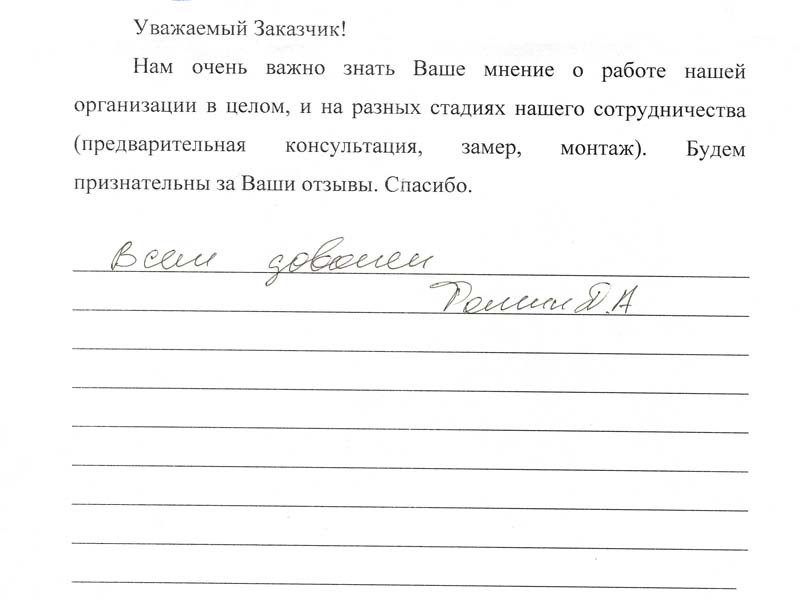 Уважаемый Заказчик!
Нам очень важно знать Ваше мнение о работе нашей
организации в целом, и на разных стадиях нашего сотрудничества
(предварительная консультация, замер, монтаж). Будем
признательны за Ваши отзывы. Спасибо.
Всем доволен